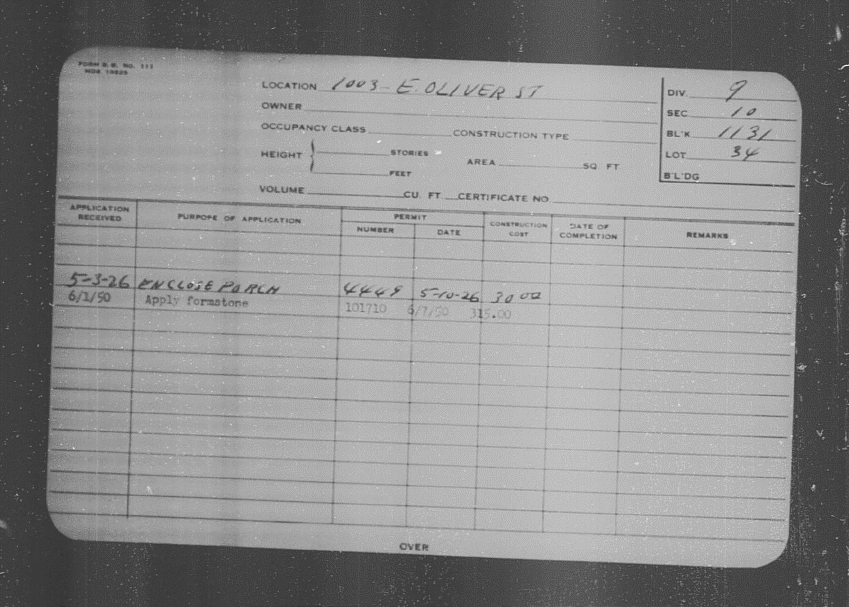 FORM B.B. NO. 112
LOCATION 1003 - E. OLIVER ST
DIV. 9
OWNER
SEC 10
OCCUPANCY CLASS CONSTRUCTION TYPE
BL'K 1131
HEIGHT STORIES FEET AREA SQ FT
LOT 34
B'L'DG
VOLUME CU. FT CERTIFICATE NO
APPLICATION RECEIVED PURPOSE OF APPLICATION PERMIT NUMBER DATE CONSTRUCTION COST DATE OF COMPLETION REMARKS
5-3-26 ENCLOSE PORCH 4449 5-10-26 30 00
6/1/50 Apply formstone 101710 6/7/50 315.00
OVER